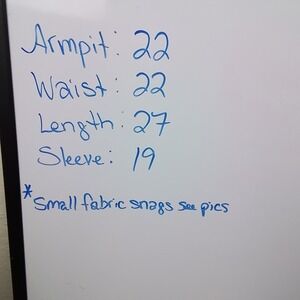 Armpit: 22
Waist: 22
Length: 27
Sleeve: 19
*Small fabric snags see pics